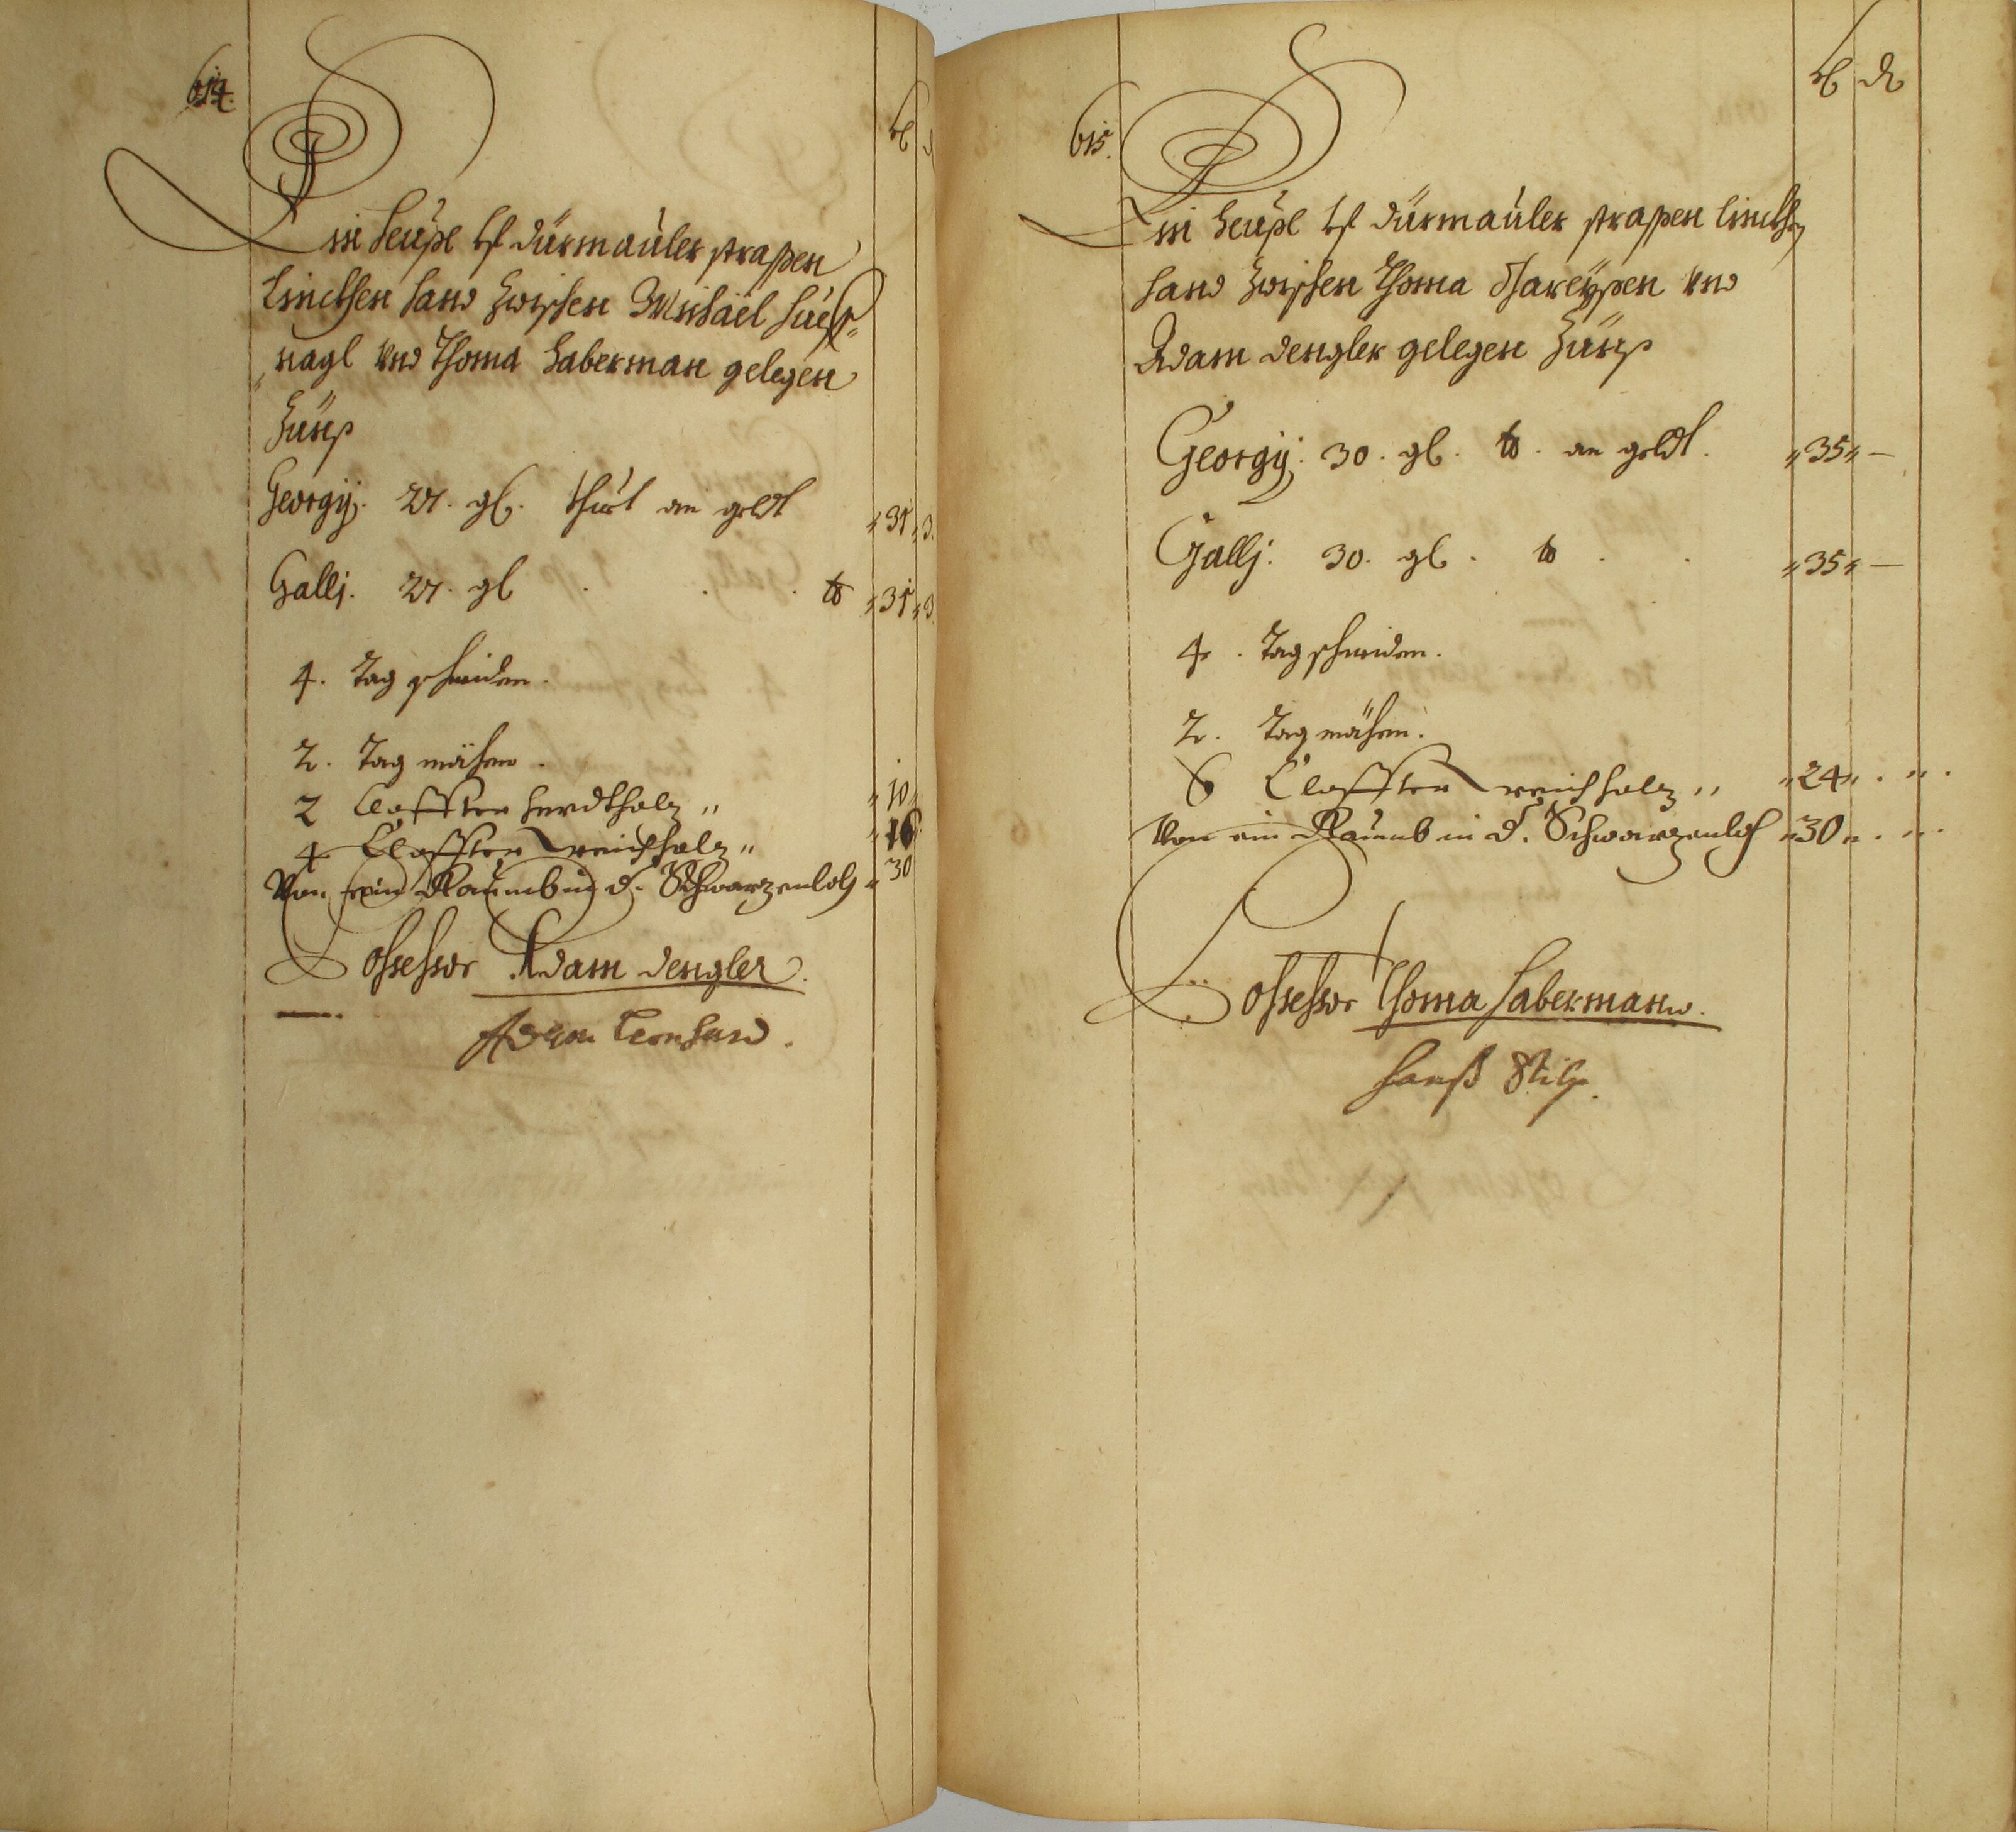 614.
Ein heüßl uf dürmaüler straßen
Linckhen hand zwischen Michael Huef„
„nagl vnd Thoma Haberman gelegen
Zünß
Georgij. 27. gl. thuet an geldt „31„3.
Gallj. 27. gl . . . to „31„3.
4. Tag schneiden.
2. Tag mähen.
2 Claffter herdtholz „ „10„
4 Claffter weichholz „ „16
Von ein Raumb in d. Schwarzenloh „30
Possessor Adam dengler.
Adam Leonhard.
615.
Ein heüßl uf dürmaüler straßen linckhen
hand zwischen Thoma Mareyßen vnd
Adam dengler gelegen Zünß
Georgij: 30. gl. to. an geldt. „35„—
Gallj: 30. gl. to . . „35„—
4. Tag schneiden.
2. Tag mähen.
6 Claffter weichholz „ „24„ . „ .
Von ein Raumb in d. Schwarzenloh „30„ . „
Possessor Thoma Habermann.
Hanß Stilp.